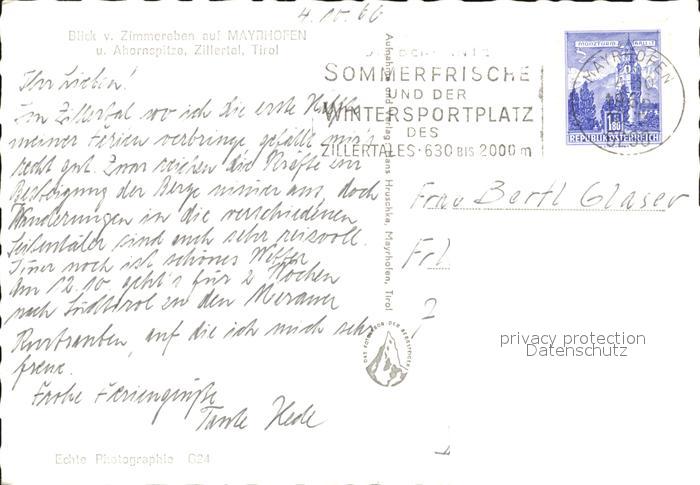 4.10.66
Blick v. Zimmereben auf MAYRHOFEN
u. Ahornspitze, Zillertal, Tirol
Ihr Lieben!
Im Zillertal wo ich die erste Hälfte
meiner Ferien verbringe gefällt mir's
recht gut. Zwar reichen die Kräfte zur
Besteigung der Berge nimmer aus, doch
Wanderungen in die verschiedenen
Seitentäler sind auch sehr reizvoll.
Immer noch ist schönes Wetter
Am 12.10. geht's für 2 Wochen
nach Südtirol zu den Meraner
Kurtrauben, auf die ich mich sehr
freue.
Frohe Feriengrüße
Tante Hede
Echte Photographie G24
Aufnahme und Verlag Hans Hruschka, Mayrhofen, Tirol
SOMMERFRISCHE
UND DER
WINTERSPORTPLATZ
DES
ZILLERTALES · 630 BIS 2000 m
MÜNZTURM HALL I. T.
S
1.80
REPUBLIK ÖSTERREICH
MAYRHOFEN
Frau Bertl Glaser
privacy protection
Datenschutz